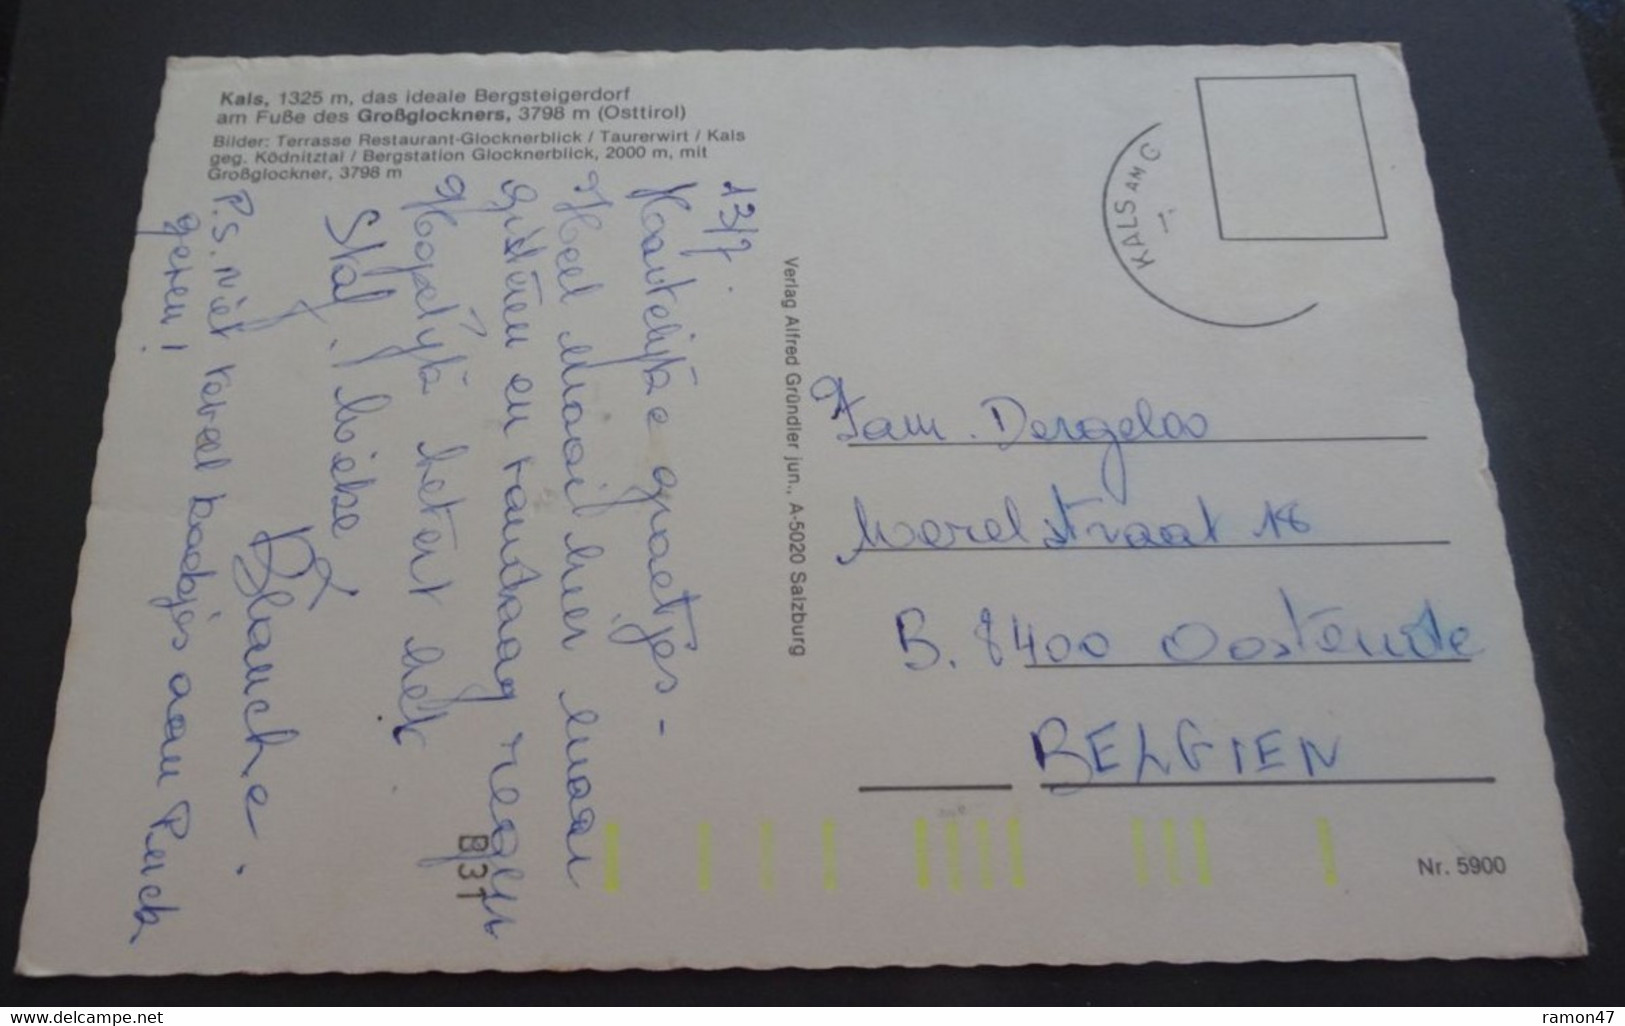 Kals, 1325 m, das ideale Bergsteigerdorf
am Fuße des Großglockners, 3798 m (Osttirol)
Bilder: Terrasse Restaurant-Glocknerblick / Taurerwirt / Kals
geg. Ködnitztal / Bergstation Glocknerblick, 2000 m, mit
Großglockner, 3798 m
13/7.
Hartelijke groetjes -
Heel mooi hier maar
gisteren en vandaag regen
Hopelijk betert het.
Staf,
Blanche.
P.S. niet veel aan
geven!
Verlag Alfred Gründler jun., A-5020 Salzburg
KALS AM G
Fam. Dergeloo
Merelstraat 18
B. 8400 Oostende
BELGIEN
B31
Nr. 5900
www.delcampe.net
ramon47